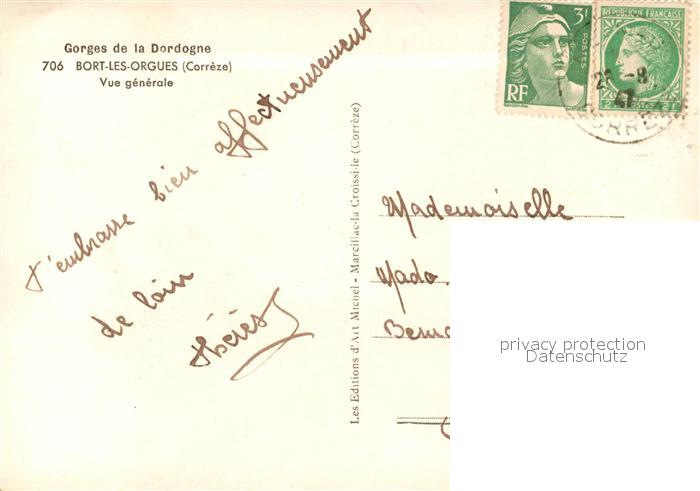 Gorges de la Dordogne
706 BORT-LES-ORGUES (Corrèze)
Vue générale
t'embrasse bien affectueusement
de loin
Les Editions d'Art Michel - Marcillac-la Croissille (Corrèze)
3F
POSTES
RF
RÉPUBLIQUE FRANÇAISE
2F POSTES 2F
2 -8
47
CORREZE
Mademoiselle
Mado
privacy protection
Datenschutz